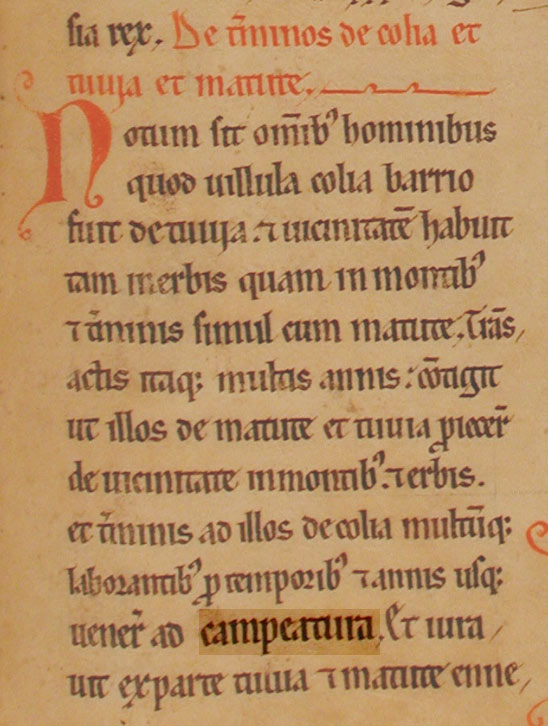 sia rex. De t̄minos de colia et
tiuija et matute.
Notum sit om̄ibꝰ hominibus
quod uillula colia barrio
fuit de tiuija. ⁊ uicinitatē habuit
tam in erbis quam in montibꝰ
⁊ t̄minis simul cum matute. Trās,
actis itaqꝫ multis annis: cōtigit
ut illos de matute et tiuuia ꝓiecer̄
de uicinitate in montibꝰ. ⁊ erbis.
et t̄minis ad illos de colia multūqꝫ
laborantibꝰ ꝑ temporibꝰ ⁊ annis usqꝫ
uener̄ ad campeatura. Et iura
uit ex parte tiuuia ⁊ matute enne,